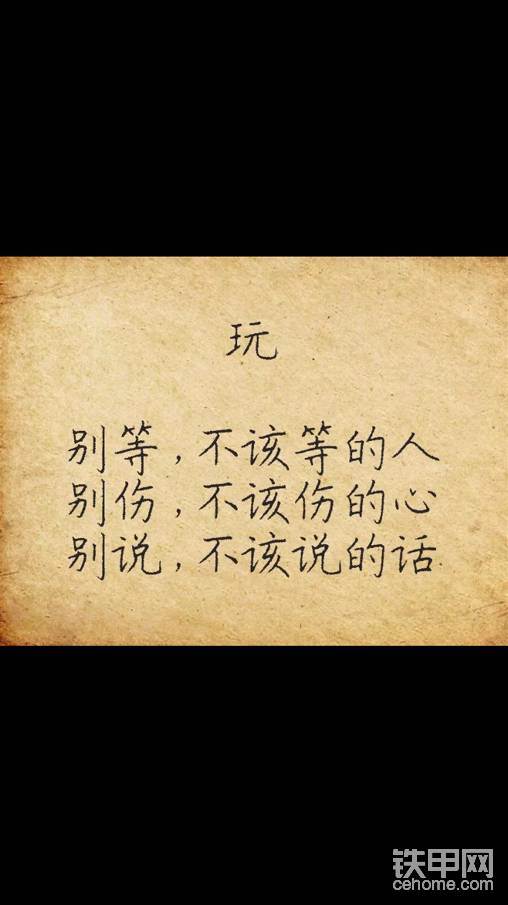 玩
别等,不该等的人
别伤,不该伤的心
别说,不该说的话
铁甲网
cehome.com